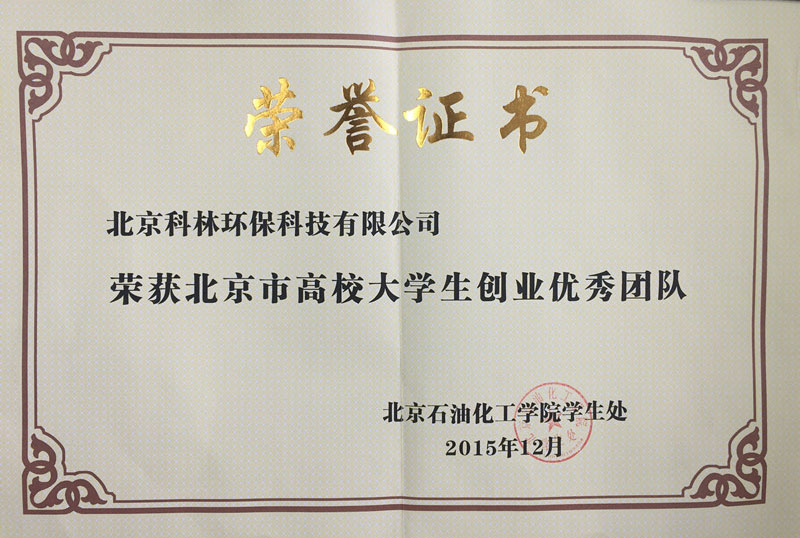 荣誉证书
北京科林环保科技有限公司
荣获北京市高校大学生创业优秀团队
北京石油化工学院学生处
2015年12月